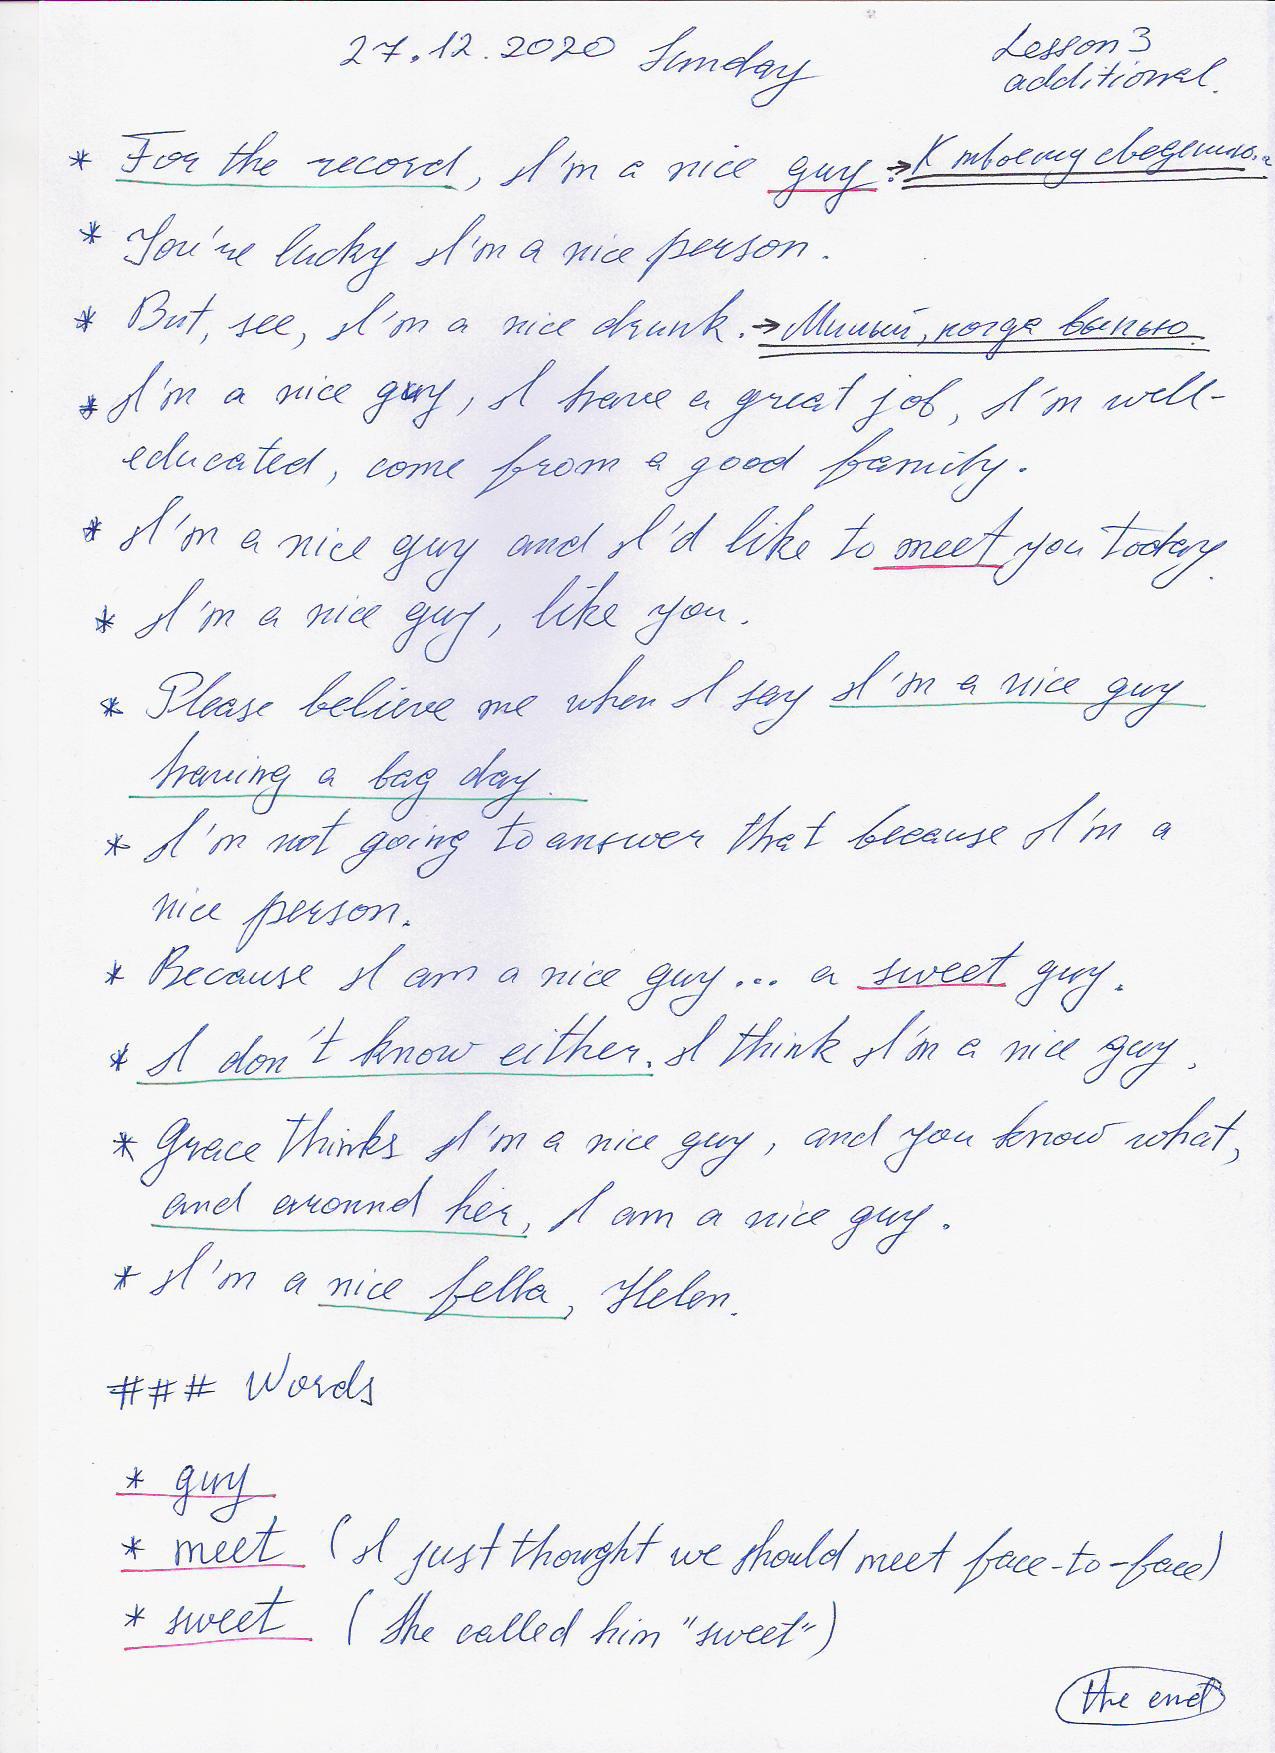 27.12.2020 Sunday
Lesson 3
additional.
* For the record, I'm a nice guy. → К твоему сведению...
* You're lucky I'm a nice person.
* But, see, I'm a nice drunk. → Милый, когда выпью.
* I'm a nice guy, I have a great job, I'm well-
educated, come from a good family.
* I'm a nice guy and I'd like to meet you today.
* I'm a nice guy, like you.
* Please believe me when I say I'm a nice guy
having a bag day.
* I'm not going to answer that because I'm a
nice person.
* Because I am a nice guy... a sweet guy.
* I don't know either. I think I'm a nice guy.
* Grace thinks I'm a nice guy, and you know what,
and around her, I am a nice guy.
* I'm a nice fella, Helen.
### Words
* guy
* meet (I just thought we should meet face-to-face)
* sweet (She called him "sweet")
the end